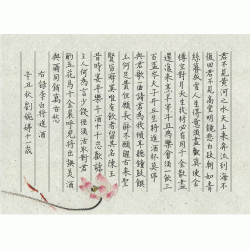 君不見黃河之水天上来奔流到海不
復回君不見高堂明鏡悲白髮朝如青
絲暮成雪人生得意須盡歡莫使金
樽空對月天生我材必有用千金散盡
還復來烹羊宰牛且為樂會須一飲三
百盃岑夫子丹丘生將進酒杯莫停
與君歌一曲請君為我傾耳聽鐘鼓饌
玉何足貴但願長醉不願醒古來聖
賢皆寂寞唯有飲者留其名陳王
昔時宴平樂斗酒十千恣歡謔
主人何為言少錢徑須沽取對君
酌五花馬千金裘呼兒將出換美酒
與爾同銷萬古愁
右録李白將進酒
辛丑秋劉